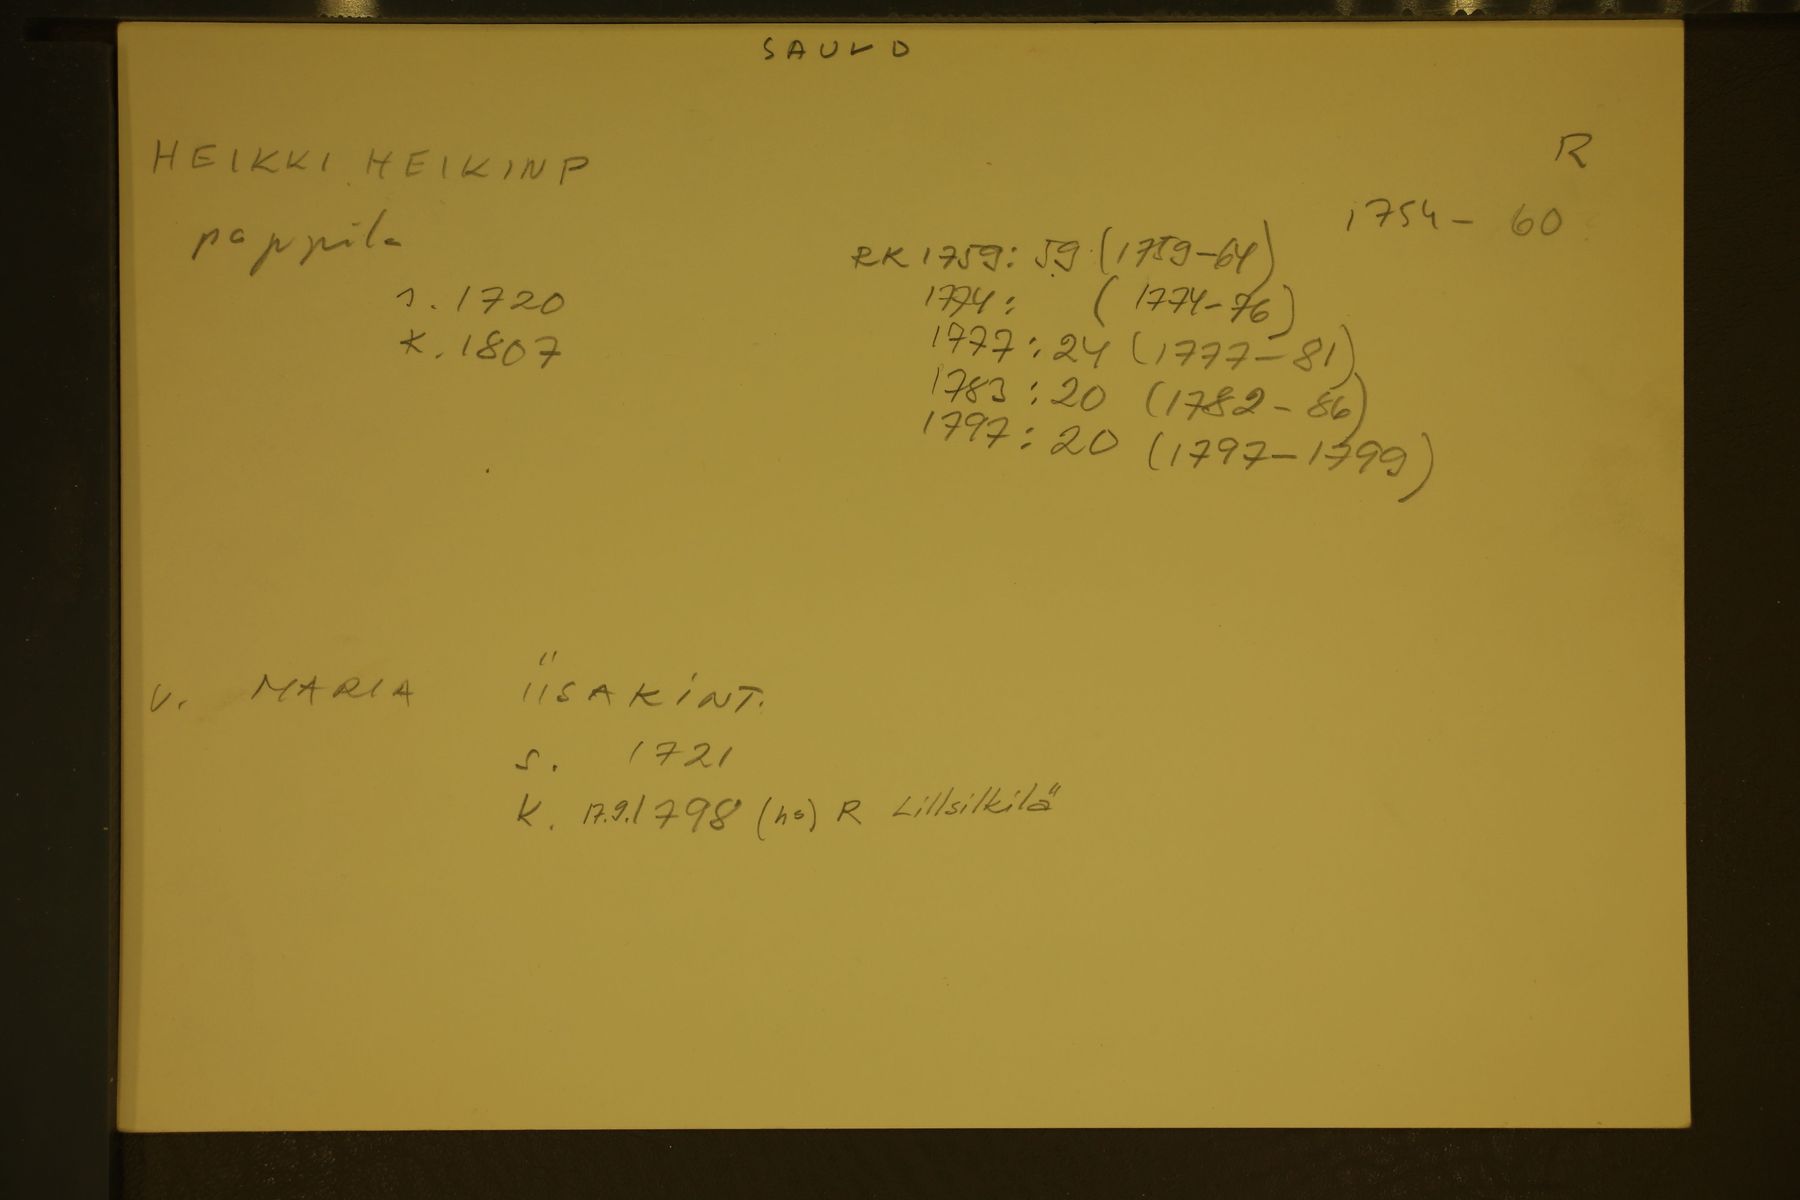 SAUVO
HEIKKI HEIKINP
R
pappila
1754 - 60
s. 1720
k. 1807
RK 1759: 59 (1759-64)
1774: (1774-76)
1777: 24 (1777-81)
1783: 20 (1782-86)
1797: 20 (1797-1799)
V. MARIA IISAKINT.
s. 1721
k. 17.9.1798 (hs) R Lillsilkilä